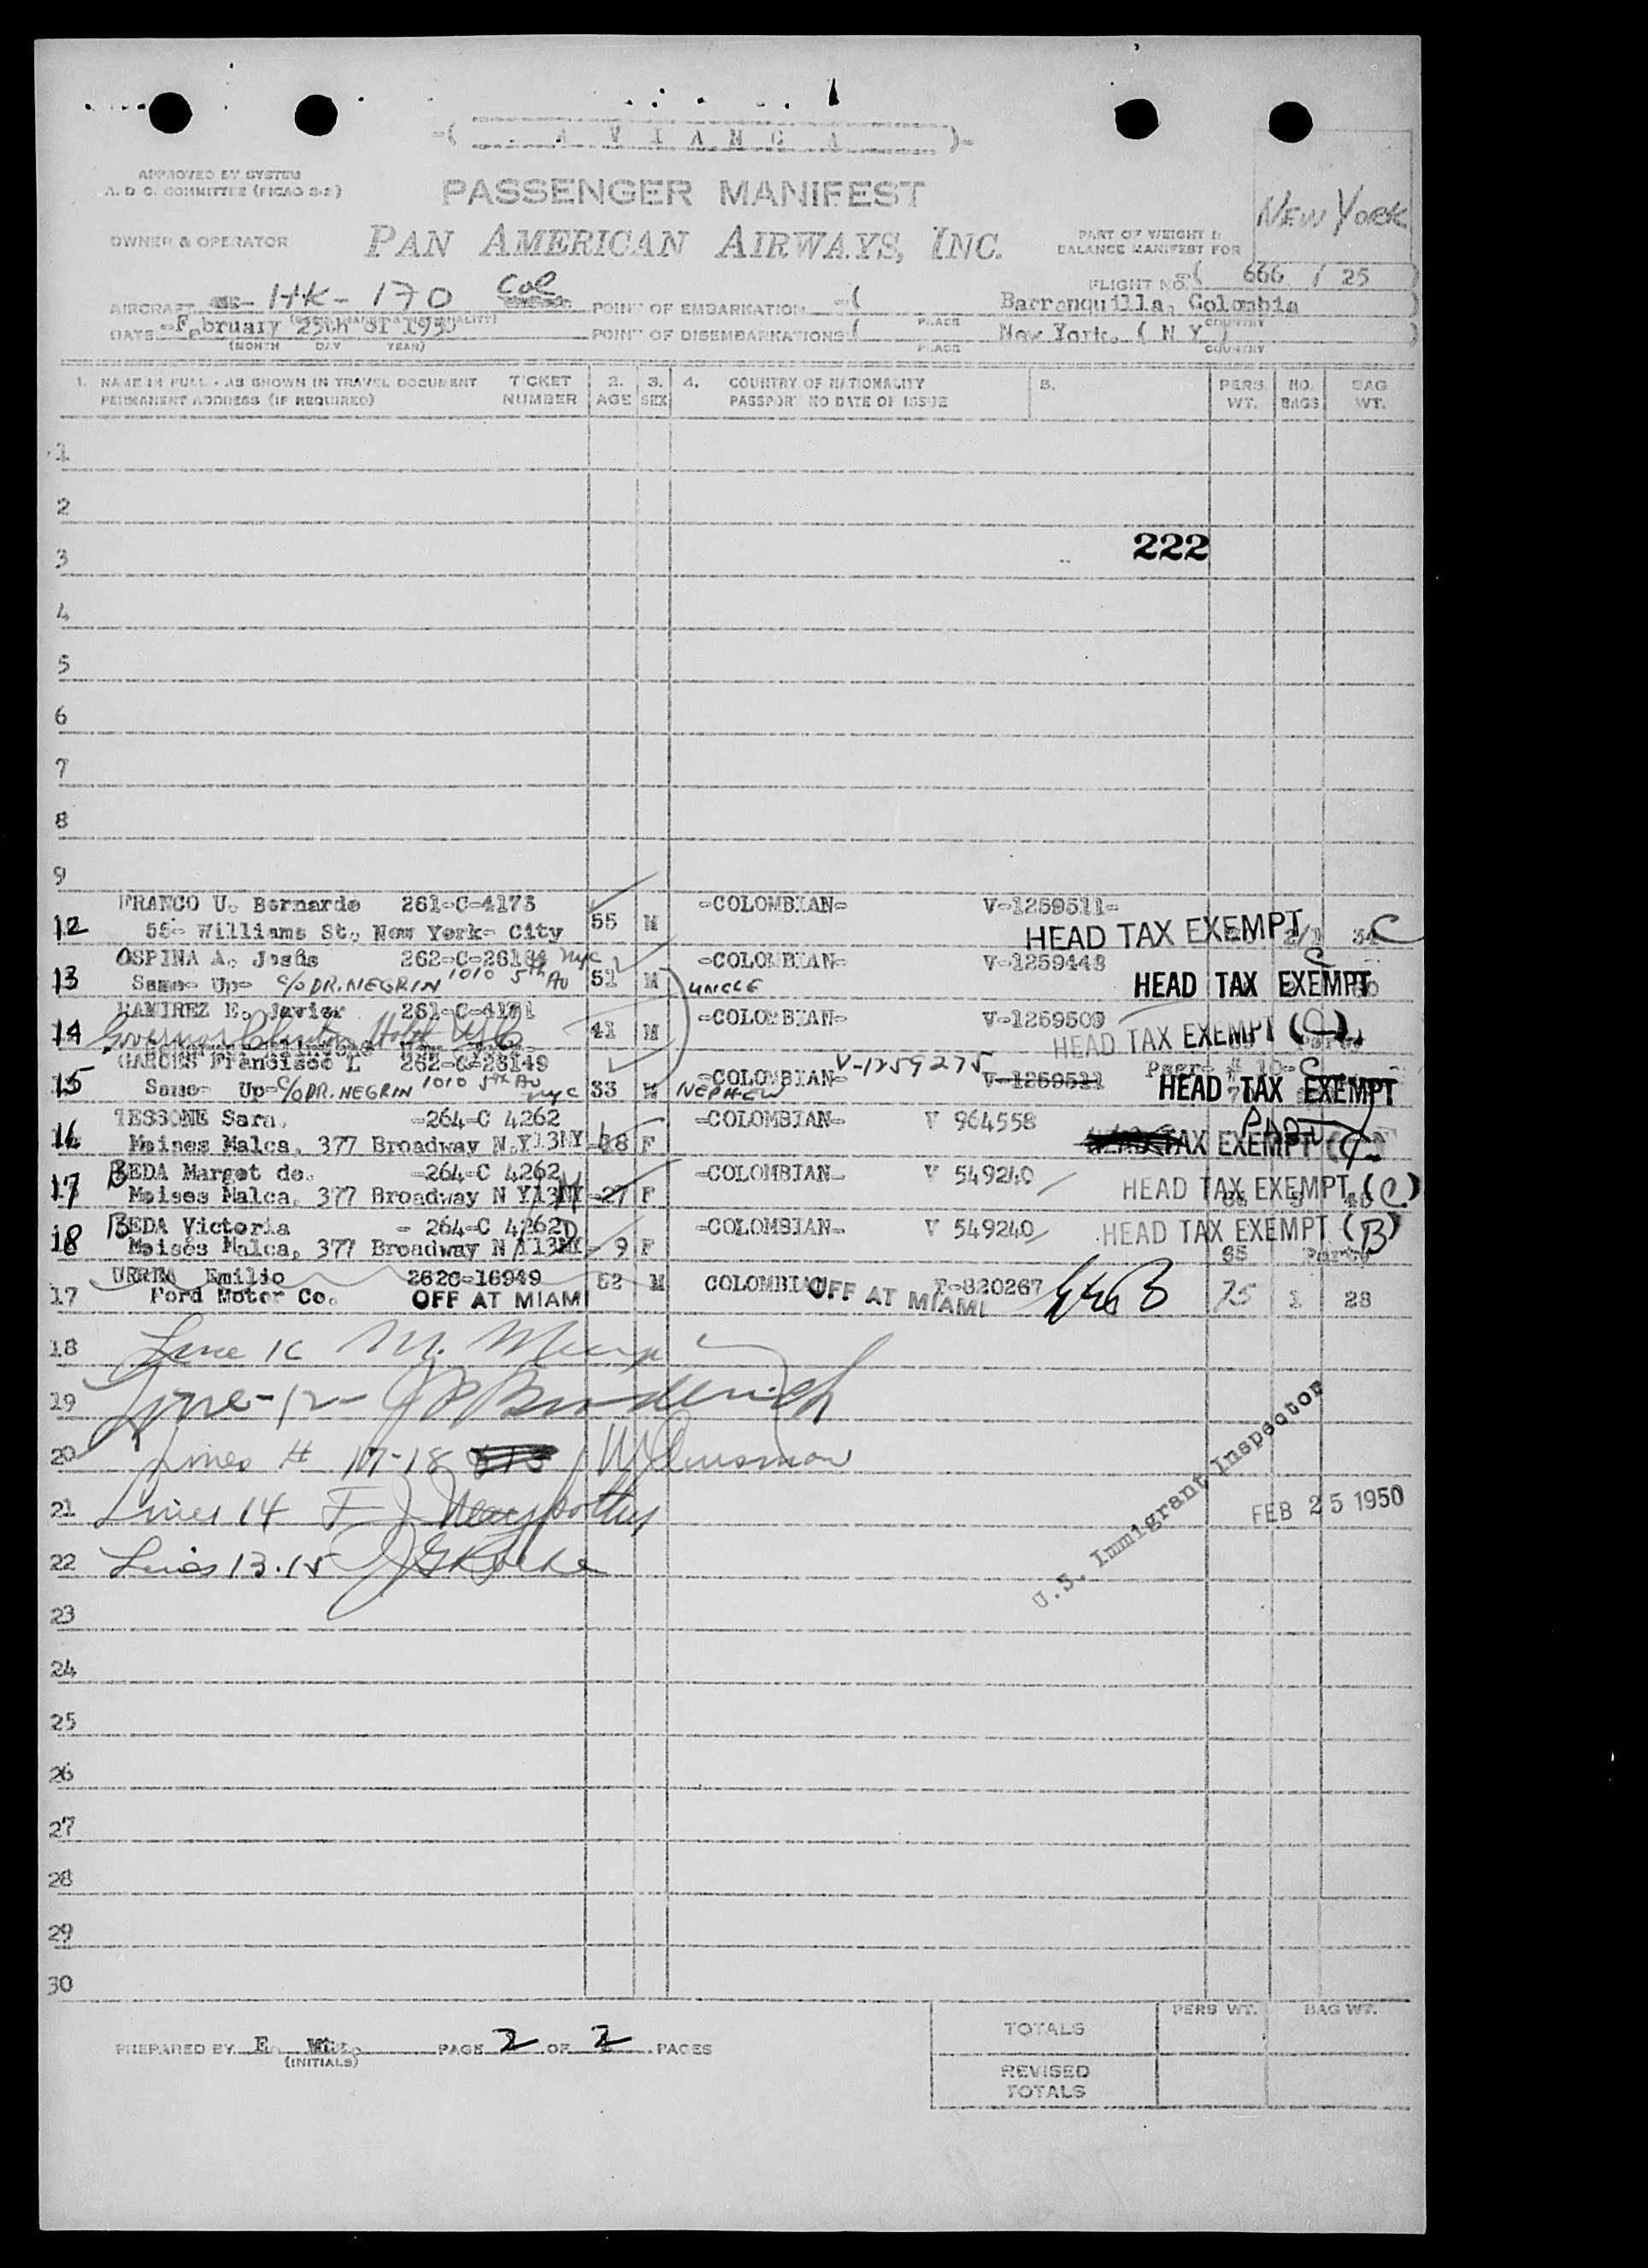 -( A V I A N C A )-
APPROVED BY SYSTEM
A. D C. COMMITTEE (FICAO S-2)
PASSENGER MANIFEST
NEW YORK
OWNER & OPERATOR
PAN AMERICAN AIRWAYS, INC.
PART OF WEIGHT &
BALANCE MANIFEST FOR
FLIGHT NO. -( 666 / 25 )
AIRCRAFT HK-170 Col
POINT OF EMBARKATION -( Barranquilla, Colombia )
PLACE COUNTRY
DATE -February 25th 1950
(MONTH DAY YEAR)
POINT OF DISEMBARKATION ( New York. ( N Y ) )
PLACE COUNTRY
1. NAME IN FULL - AS SHOWN IN TRAVEL DOCUMENT TICKET 2. 3. 4. COUNTRY OF NATIONALITY 5. PERS. NO. BAG
PERMANENT ADDRESS (IF REQUIRED) NUMBER AGE SEX PASSPORT NO DATE OF ISSUE WT. BAGS WT.
1
2
3 222
4
5
6
7
8
9
FRANCO U. Bernardo 261-C-4173 -COLOMBIAN- V-1259511-
12 55- Williams St, New York- City 55 M HEAD TAX EXEMPT C
OSPINA A. Jesús NYC -COLOMBIAN- V-1259448 C
13 Same- Up- c/o DR. NEGRIN 1010 5th AV 51 M UNCLE HEAD TAX EXEMPT
RAMIREZ E. Javier 261-C-4171 -COLOMBIAN- V-1259509
14 Governor Clinton Hotel 41 M HEAD TAX EXEMPT (C)
GARCES Francisco L 262-C-26149 -COLOMBIAN- V-1259275 C
15 Same- Up- c/o DR. NEGRIN 1010 5th AV NYC 33 M NEPHEW HEAD TAX EXEMPT
TESSONE Sara. -264-C 4262 -COLOMBIAN- V 964558
16 Moises Malca, 377 Broadway N.Y13NY 18 F TAX EXEMPT
BEDA Margot de. -264-C 4262 -COLOMBIAN- V 549240
17 Moises Malca, 377 Broadway N Y13NY 27 F HEAD TAX EXEMPT (C)
BEDA Victoria - 264-C 4262 -COLOMBIAN- V 549240 HEAD TAX EXEMPT (B)
18 Moisés Malca, 377 Broadway N Y13NY - 9 F 65 Party
URREA Emilio 262C-16949 52 M COLOMBIAN T-820267
17 Ford Motor Co. OFF AT MIAMI OFF AT MIAMI 75 1 28
18 Line 16 M.
19 Line-12-
20 Lines # 17-18
21 Lines 14 F J
22 Lines 13.15
U.S. Immigrant Inspector
FEB 25 1950
23
24
25
26
27
28
29
30
PERS WT. BAG WT.
TOTALS
PREPARED BY E. (INITIALS) PAGE 2 OF 2 PAGES
REVISED
TOTALS